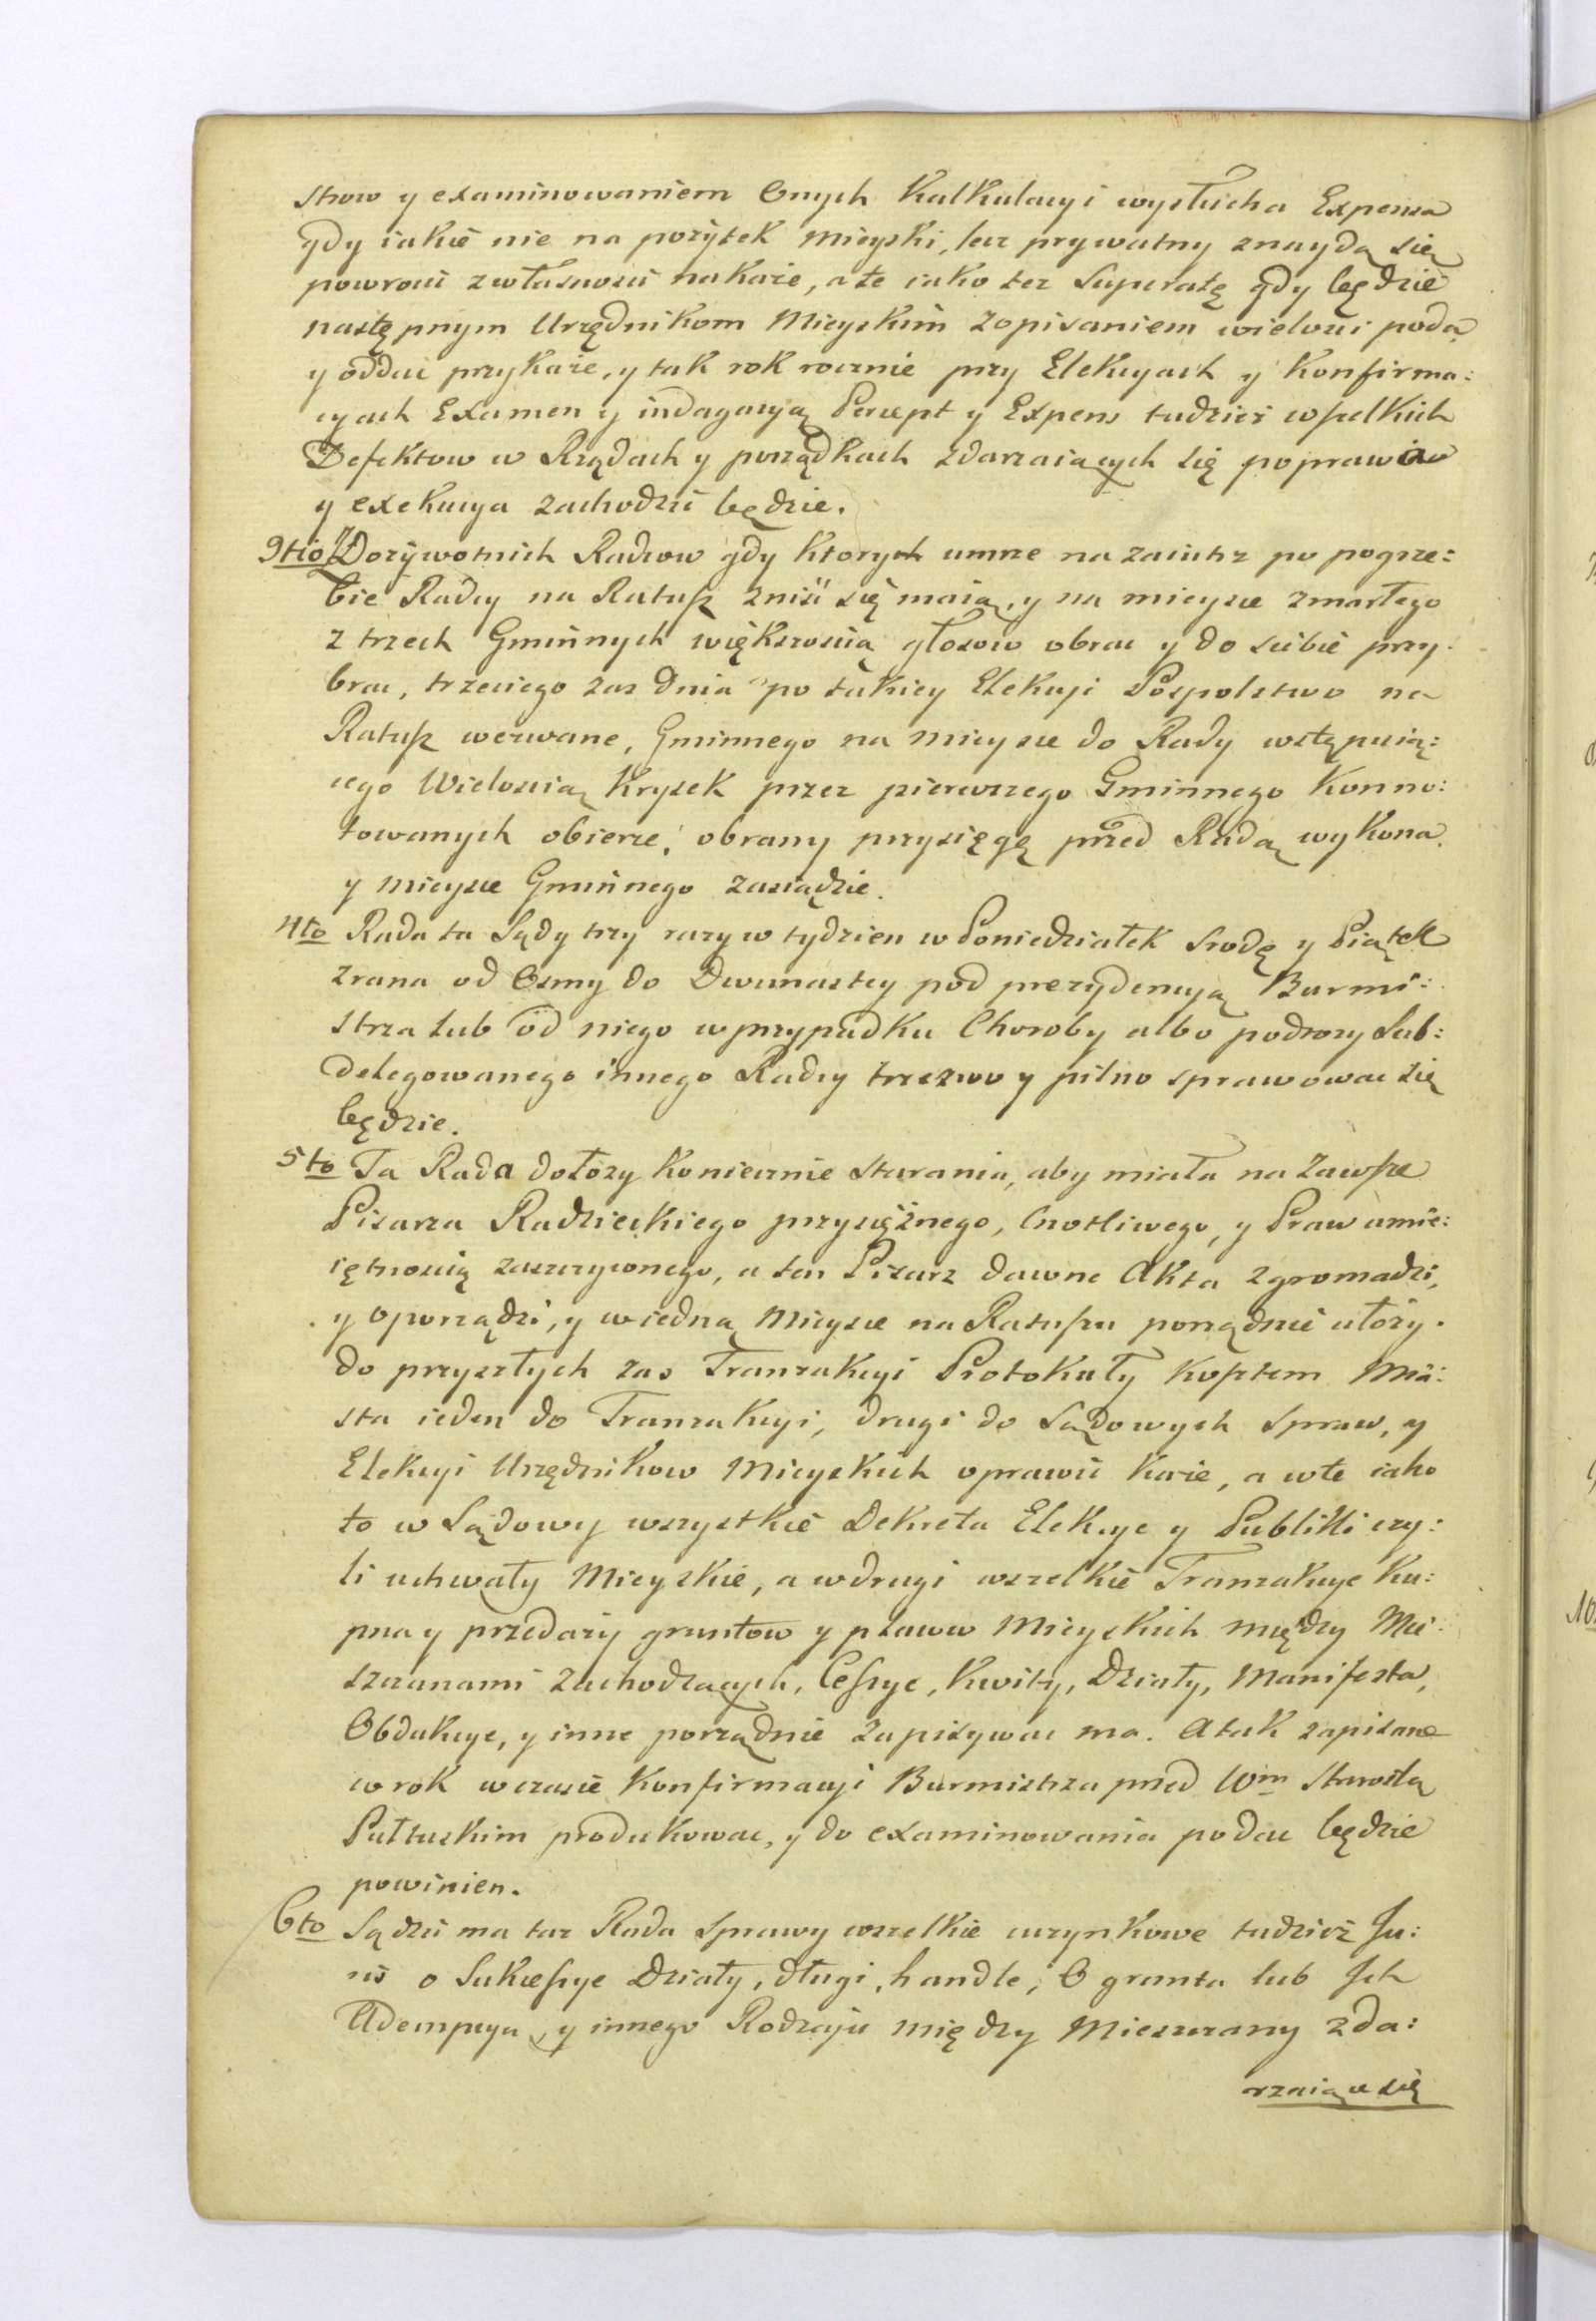 strow y examinowaniem Onych Kalkulacyi wysłucha Expensa
gdy iakie nie na pożytek Mieyski, lecz prywatny znaydą się
powrocić z własności nakaże, a te iako tez Superatę gdy będzie
następnym Urzędnikom Mieyskim zopisaniem wielości poda
y oddać przykaże, y tak rok rocznie przy Elekcyach y Konfirma:
cyach Examen y indagacyą Percept y Expens tudzież wszelkich
Defektow w Rządach y porządkach zdarzaiących się poprawa
y exekucya zachodzić będzie.
3tio Z Dożywotnich Radcow gdy ktory umrze na zaiutrz po pogrze:
bie Radcy na Ratusz zniść się maią, y na mieysce zmarłego
z trzech Gminnych większością głosow obrac y do siebie przy:
brac, trzeciego zas dnia po takiey Elekcyi Pospolstwo na
Ratusz wezwane, Gminnego na mieysce do Rady wstępuią:
cego Wielością Krysek przez pierwszego Gminnego Konno:
towanych obierze, obrany przysięgę przed Radą wykona
y mieysce Gminnego zasiądzie.
4to Rada ta Sądy trzy razy w tydzien w Poniedziałek Srodę y Piątek
zrana od Osmy do Dwunastey pod prezydencyą Burmi:
strza lub od niego w przypadku Choroby albo podrozy Sub:
delegowanego innego Radcy trzezwo y pilno sprawowac się
będzie.
5to Ta Rada dołozy koniecznie starania, aby miała na zawsze
Pisarza Radzieckiego przysiężnego, Cnotliwego, y Praw umie:
iętnoscią zaszczyconego, a ten Pisarz dawne Akta zgromadzi,
y oporządzi, y w iedną Mieysce na Ratuszu porządnie ułoży.
do przyszłych zas Tranzakcyi Protokuły kosztem Mia:
sta ieden do Tranzakcyi, drugi do Sądowych spraw, y
Elekcyi Urzędnikow Mieyskich oprawić każe, a w te iako
to w Sądowy wszystkie Dekreta Elekcye y Publikki czy:
li uchwały Mieyskie, a w drugi wszelkie Tranzakcye Ku:
pna y przedaży gruntow y placow Mieyskich między Mie:
szczanami zachodzących, Cessye, Kwity, Działy, Manifesta,
Obdukcye, y inne porządnie zapisywac ma. A tak zapisane
w rok w czasie Konfirmacyi Burmistrza przed Wm Starostą
Pułtuskim produkowac, y do examinowania podac będzie
powinien.
6to Sądzić ma taz Rada sprawy wszelkie uczynkowe tudzież Ju:
ris o Sukcessye Działy, długi, handle, O grunta lub Ich
Adempcya, y innego Rodzaju między Mieszczany zda:
rzaiące się